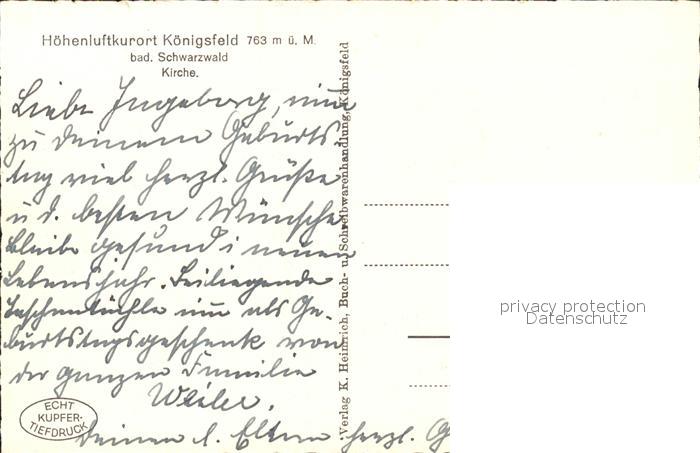 Höhenluftkurort Königsfeld 763 m ü. M.
bad. Schwarzwald
Kirche.
Liebe Ingeborg, nun
zu deinem Geburts-
tag viel herzl. Grüße
u d. besten Wünsche
bleibe gesund i neuen
Lebensjahr. Beiliegende
Taschentüchle nim als Ge-
burtstagsgeschenk von
der ganzen Familie
Weiler.
Deinen l. Eltern herzl. G
ECHT
KUPFER-
TIEFDRUCK
Verlag K. Heinrich, Buch- u. Schreibwarenhandlung, Königsfeld
privacy protection
Datenschutz